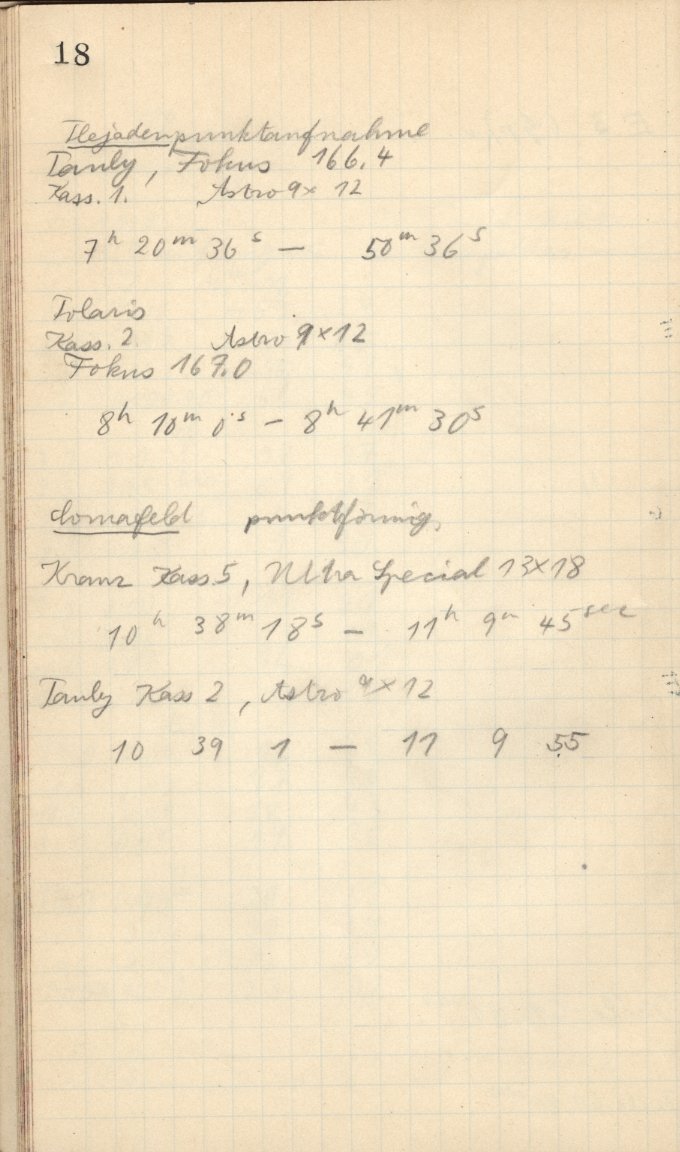 18
Plejadenpunktaufnahme
Tauby, Fokus 166.4
Kass. 1. Astro 9x12
7h 20m 36s — 50m 36s
Polaris
Kass. 2. Astro 9x12
Fokus 167.0
8h 10m 0s — 8h 41m 30s
Comafeld punktförmig,
Kranz Kass. 5, Ultra Special 13x18
10h 38m 18s — 11h 9m 45sec
Tauby Kass 2, Astro 9x12
10 39 1 — 11 9 55